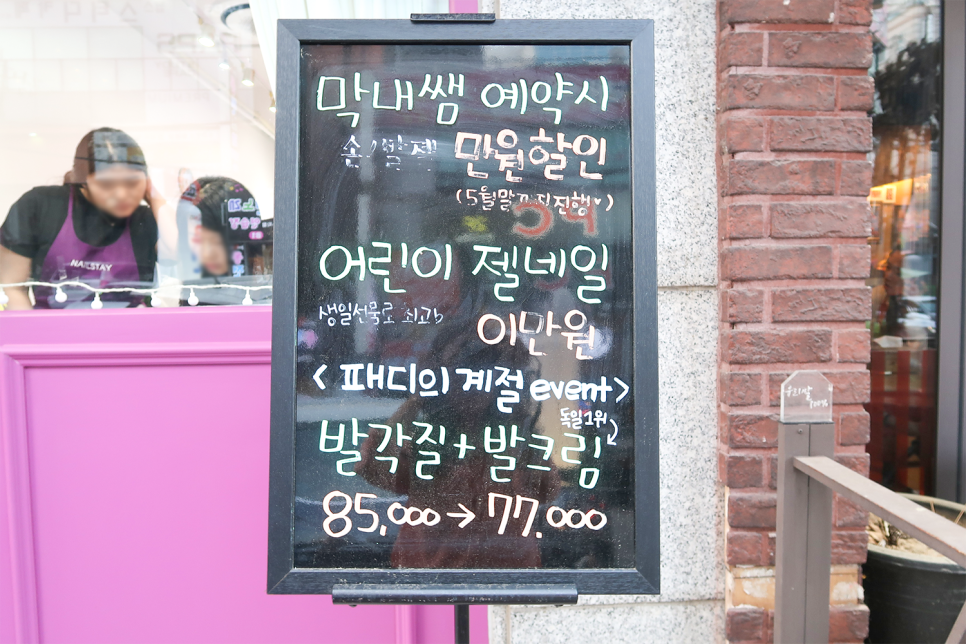 막내쌤 예약시
손/발 젤 만원할인
(5월말까지진행♥)
어린이 젤네일
생일선물로 최고b
이만원
<패디의계절 event>
독일1위
발각질+발크림
85,000→77.000
NAILSTAY